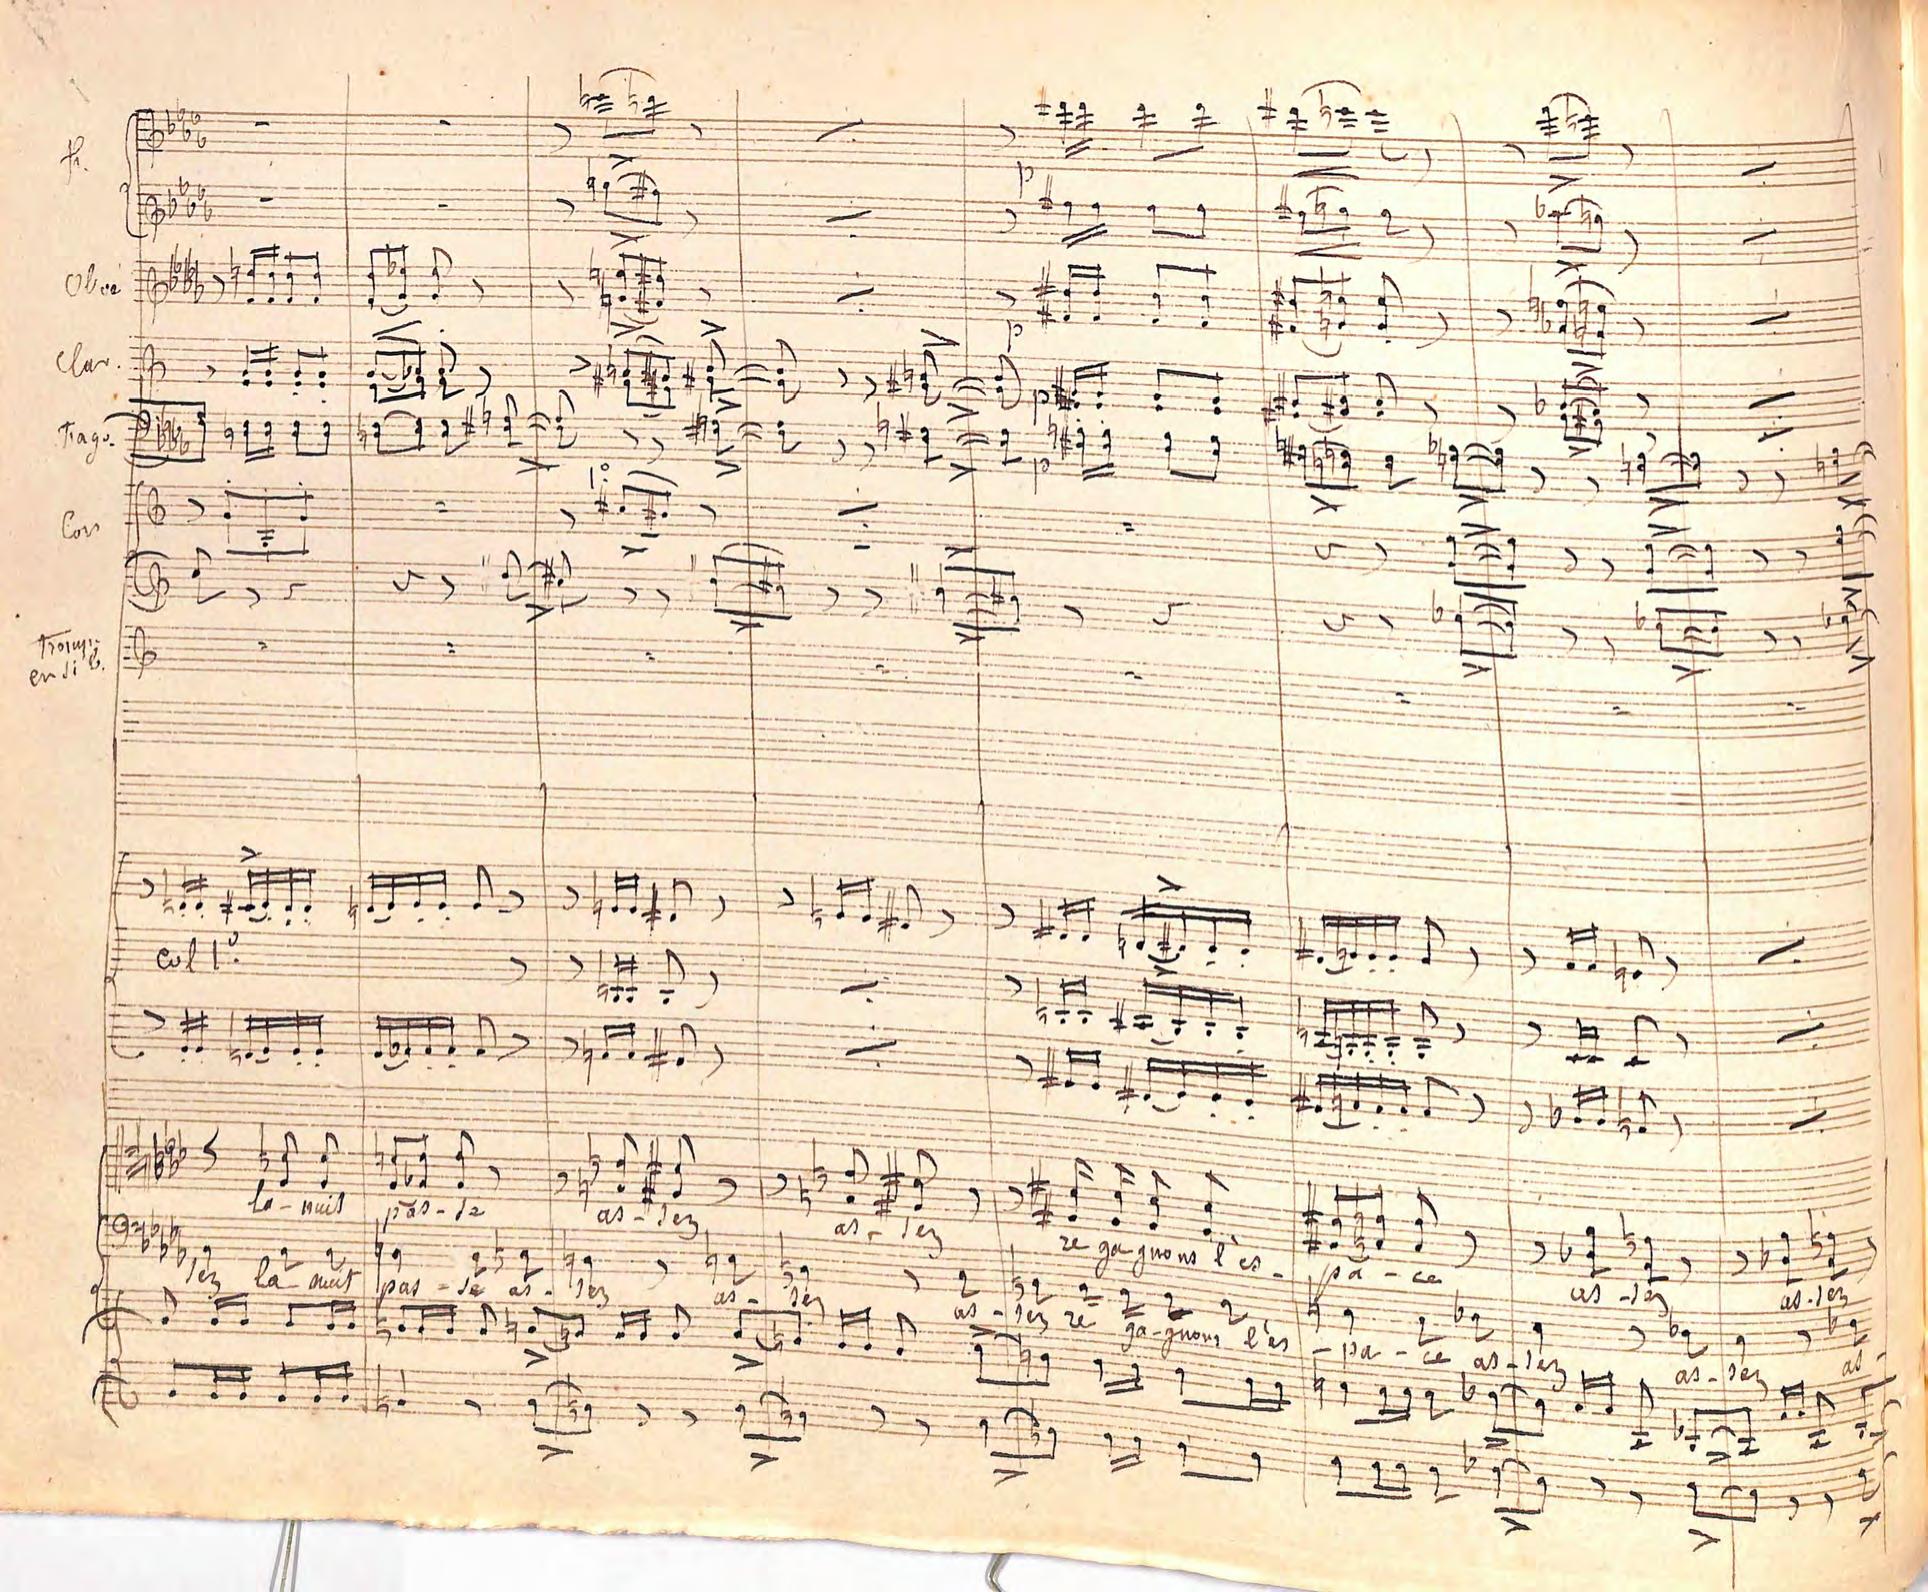 fl.
p
Oboe
p
Clar.
p
Fago.
p
1º
Cor
Tromp.
en si b.
col 1º
la - nuit pas - se as - sez as - sez re ga - gnons l'es - pa - ce as - sez as - sez
sez la - nuit pas - se as - sez as - sez as - sez re ga - gnons l'es - pa - ce as - sez as - sez as -